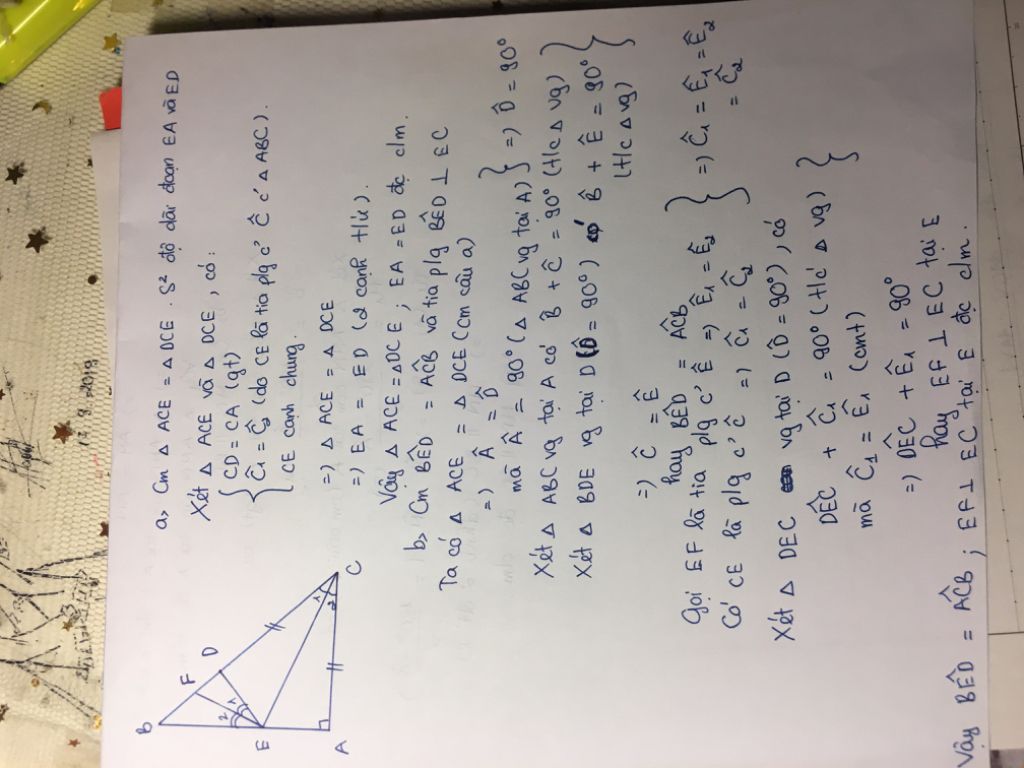 a, Cm △ ACE = △ DCE. S² độ dài đoạn EA và ED
Xét △ ACE và △ DCE, có:
CD = CA (gt)
Ĉ₁ = Ĉ₂ (do CE là tia plg c' Ĉ c' △ ABC).
CE cạnh chung.
=) △ ACE = △ DCE
=) EA = ED (2 cạnh t/ứ).
Vậy △ ACE = △DCE ; EA = ED đc c/m.
b, Cm BÊD = AĈB và tia plg BÊD ⊥ EC
Ta có △ ACE = △ DCE (Cm câu a)
=) Â = D̂
mà Â = 90° (△ ABC vg tại A) } =) D̂ = 90°
Xét △ ABC vg tại A có B̂ + Ĉ = 90° (t/c △ vg)
Xét △ BDE vg tại D (D̂ = 90°) có B̂ + Ê = 90° }
(t/c △ vg)
=) Ĉ = Ê
hay BÊD = AĈB
Gọi EF là tia plg c' Ê =) Ê₁ = Ê₂
Có CE là plg c' Ĉ =) Ĉ₁ = Ĉ₂ } =) Ĉ₁ = Ê₁ = Ê₂
= Ĉ₂
Xét △ DEC vg tại D (D̂ = 90°), có
DÊC + Ĉ₁ = 90° (t/c △ vg) }
mà Ĉ₁ = Ê₁ (cmt)
=) DÊC + Ê₁ = 90°
hay EF ⊥ EC tại E
Vậy BÊD = AĈB ; EF ⊥ EC tại E đc c/m.
B
F
D
2
1
1
2
E
A
C